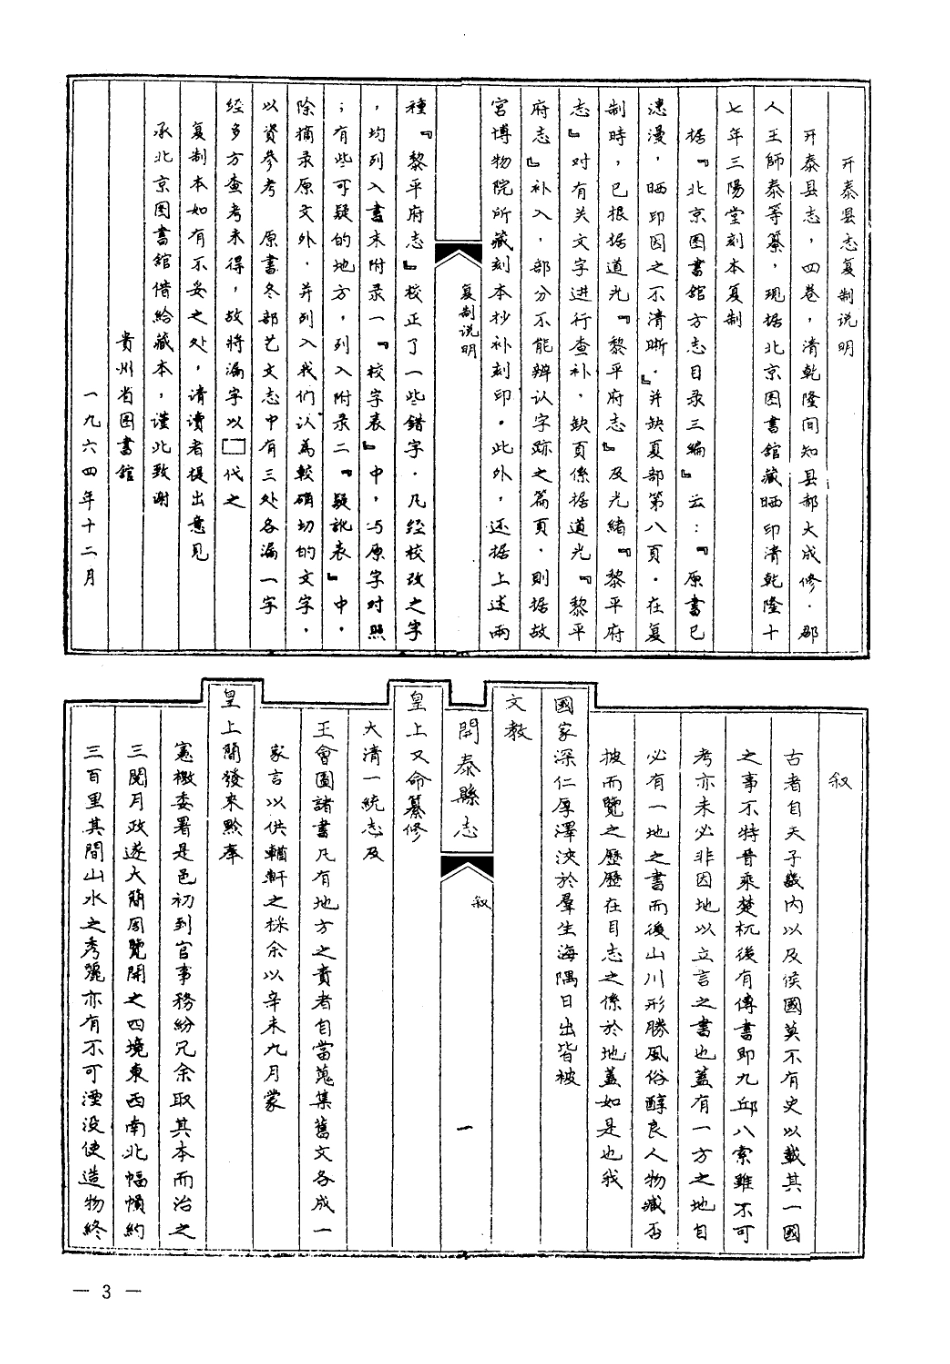 开泰县志复制说明
开泰县志，四卷，清乾隆间知县郝大成修．郡
人王師泰等纂，現据北京图書館藏晒印清乾隆十
七年三陽堂刻本复制
据『北京图書館方志目录三編』云：『原書已
漶漫，晒印因之不清晰．』并缺夏部第八頁．在复
制時，已根据道光『黎平府志』及光緒『黎平府
志』对有关文字进行查补．缺頁係据道光『黎平
府志』补入．部分不能辨认字跡之篇頁．則据故
宮博物院所藏刻本抄补刻印．此外，还据上述兩
复制说明
種『黎平府志』校正了一些錯字．凡经校改之字
，均列入書末附录一『校字表』中，与原字对照
；有些可疑的地方，列入附录二『疑訛表』中．
除摘录原文外．并列入我们认為較确切的文字．
以資參考 原書冬部艺文志中有三处各漏一字
经多方查考未得，故将漏字以□代之
复制本如有不妥之处，请讀者提出意見
承北京图書館借給藏本，谨此致谢
贵州省图書館
一九六四年十二月
叙
古者自天子畿内以及侯國莫不有史以載其一國
之事不特晉乘楚杌後有傳書即九邱八索雖不可
考亦未必非因地以立言之書也蓋有一方之地自
必有一地之書而後山川形勝風俗醇良人物臧否
披而覽之歷歷在目志之係於地蓋如是也我
國家深仁厚澤浹於羣生海隅日出皆被
文教
開泰縣志
叙
一
皇上又命纂修
大清一統志及
王會圖諸書凡有地方之責者自當蒐集舊文各成一
家言以供輶軒之採余以辛未九月蒙
皇上簡發來黔奉
憲檄委署是邑初到官事務紛冗余取其本而治之
三閱月政遂大簡周覽開之四境東西南北幅幀約
三百里其間山水之秀麗亦有不可湮没使造物終
— 3 —